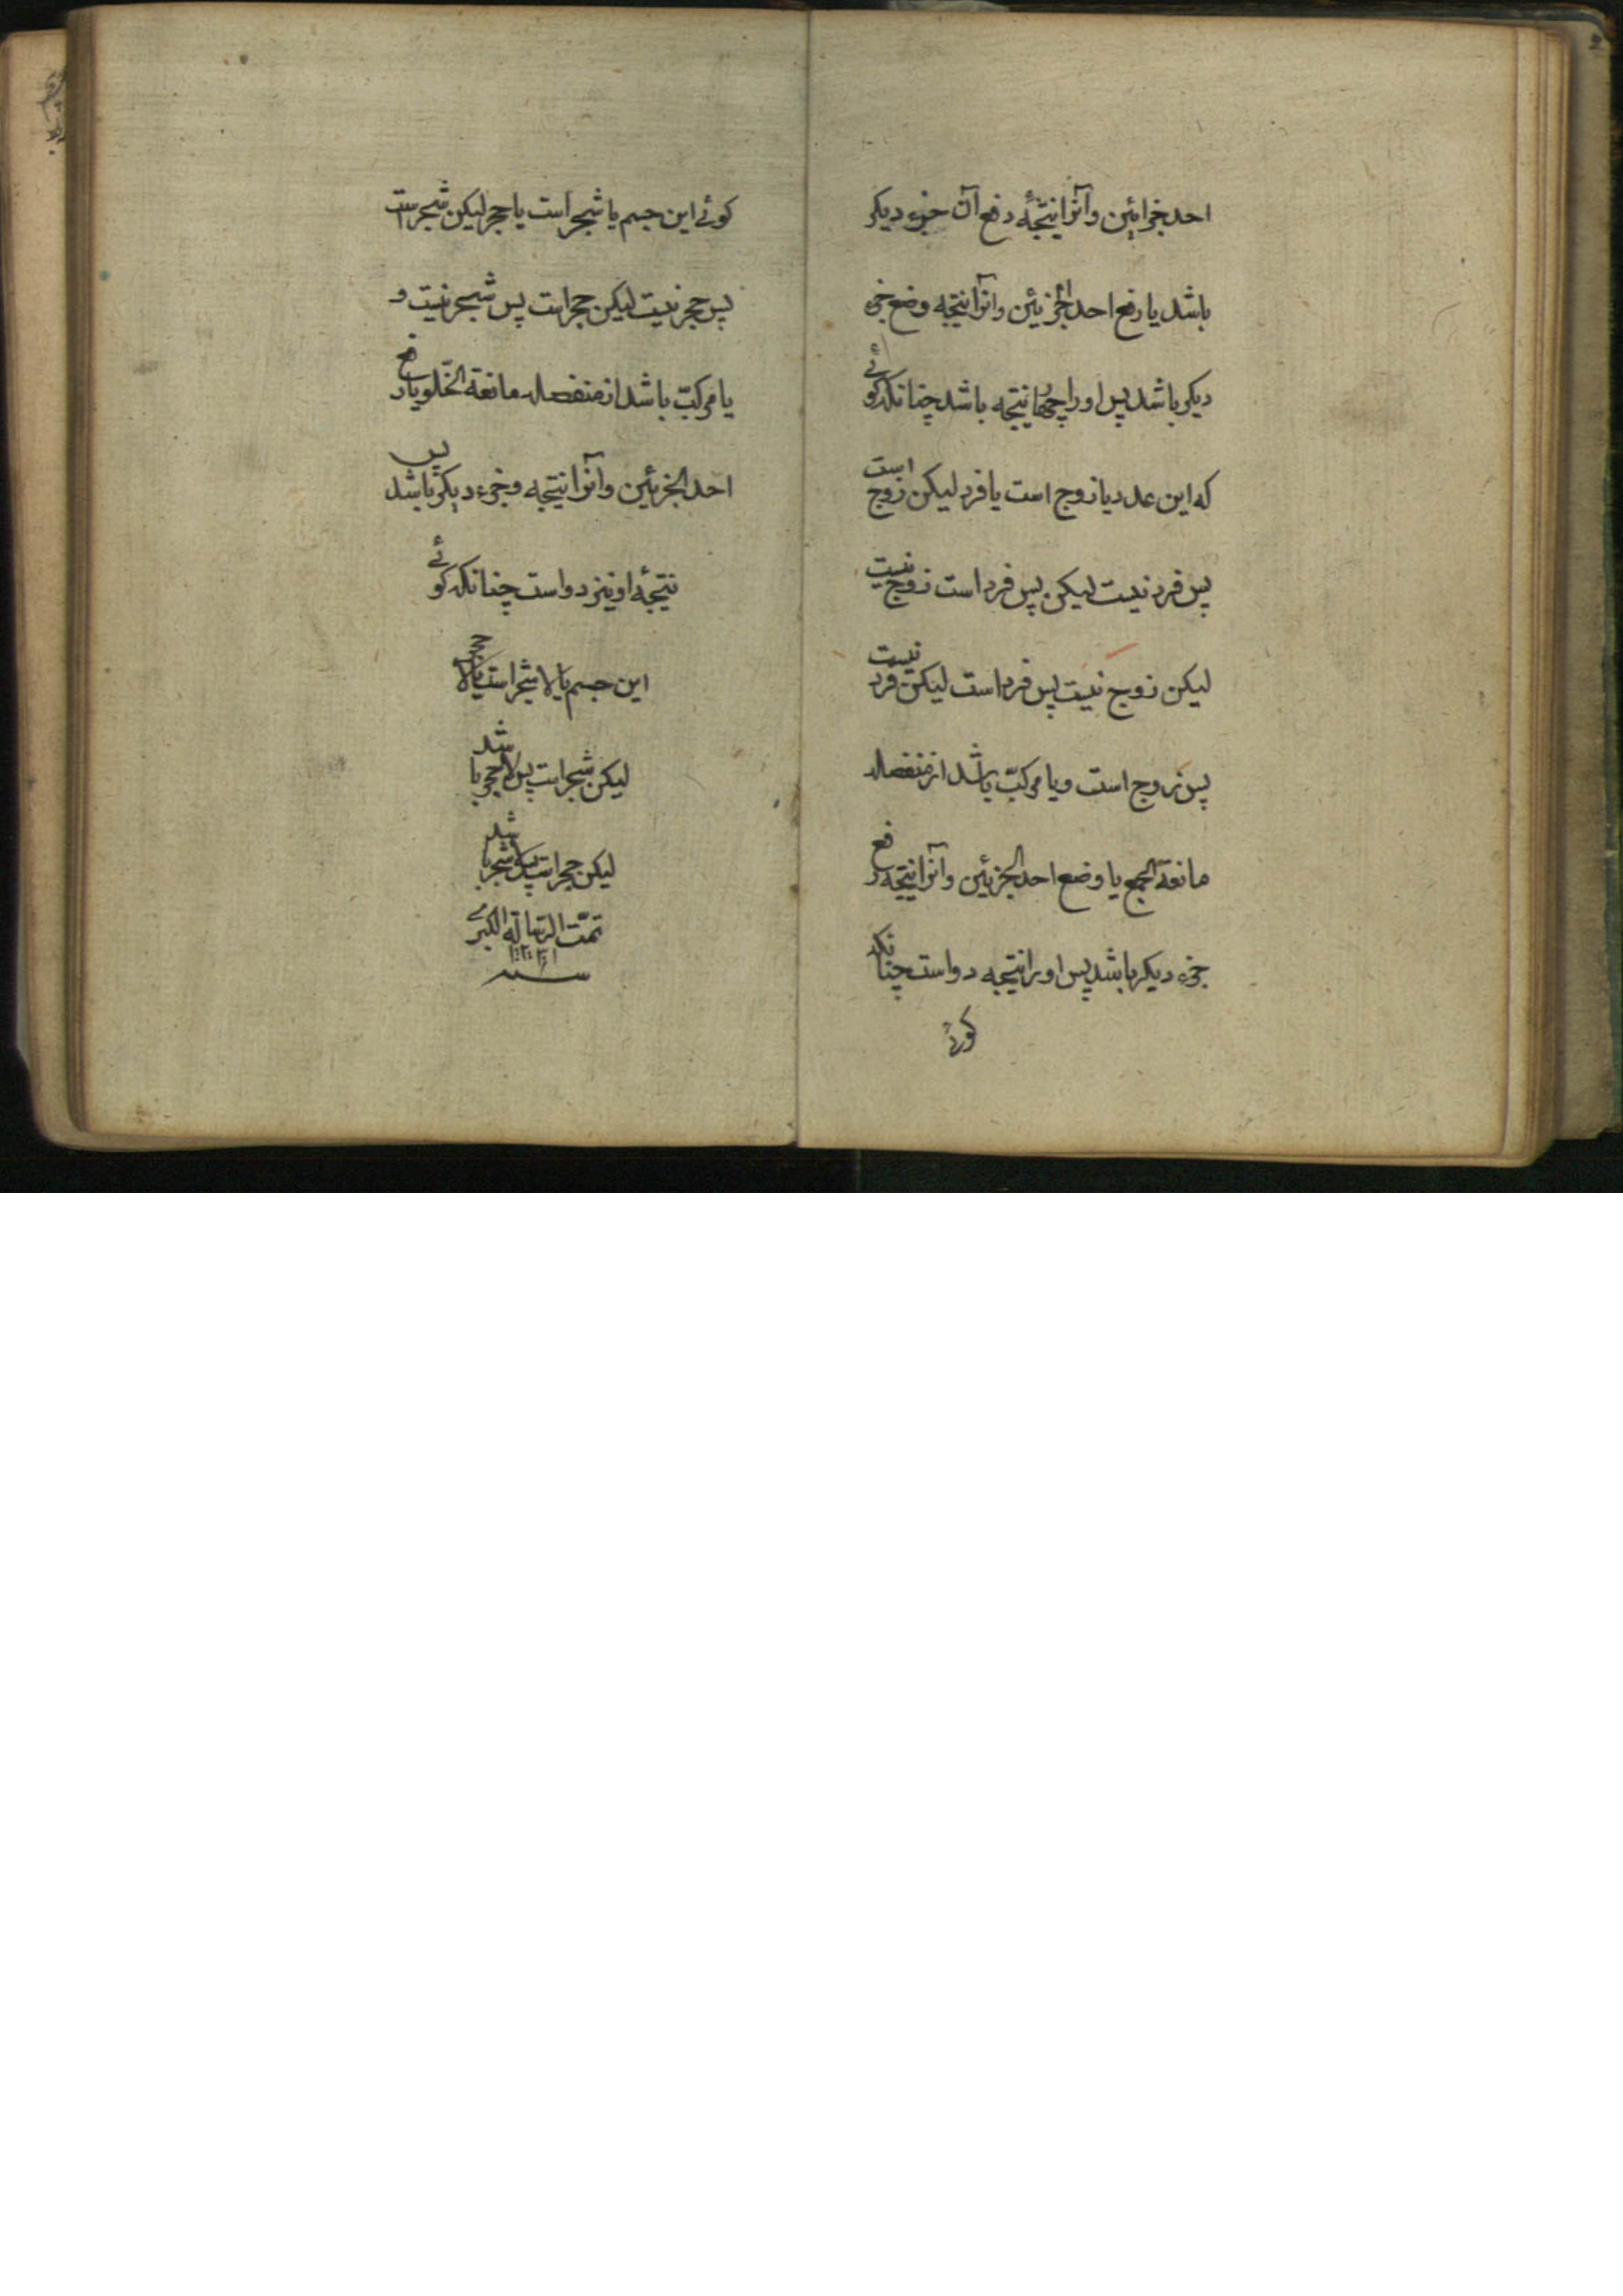 احد جزایئن وآنرا نتیجۀ رفع آن جزء دیکر
باشد یا رفع احد الجزئین وانرا نتیجه وضع جزء
دیکر باشد پس او را چهار نتیجه باشد چنانکه کوئے
که این عدد یا زوج است یا فرد لیکن زوج است
پس فرد نیست لیکن پس فرد است زوج نیست
لیکن زوج نیست پس فرد است لیکن فرد نیست
پس زوج است ویا مرکبّ باشد از منفصله
مانعة الجمع یا وضع احد الجزئین وآنرا نتیجه رفع
جزء دیکر باشد پس او را نتیجه دو است چنانکه
کوئے
کوئے این جسم یا شجر است یا حجر لیکن شجر است
پس حجر نیست لیکن حجر است پس شجر نیست و
یا مرکبّ باشد از منفصله مانعة الخلّو یا رفع
احد الجزئین وآنرا نتیجه وجزء دیکر باشد پس
نتیجۀ او نیز دو است چنانکه کوئے
این جسم یا لا شجر است یا لا حجر
لیکن شجر است پس لا حجر باشد
لیکن حجر است پس لا شجر باشد
تمّت الرّسالة الکبرے